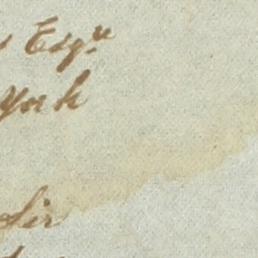 Esqr
York
Sir